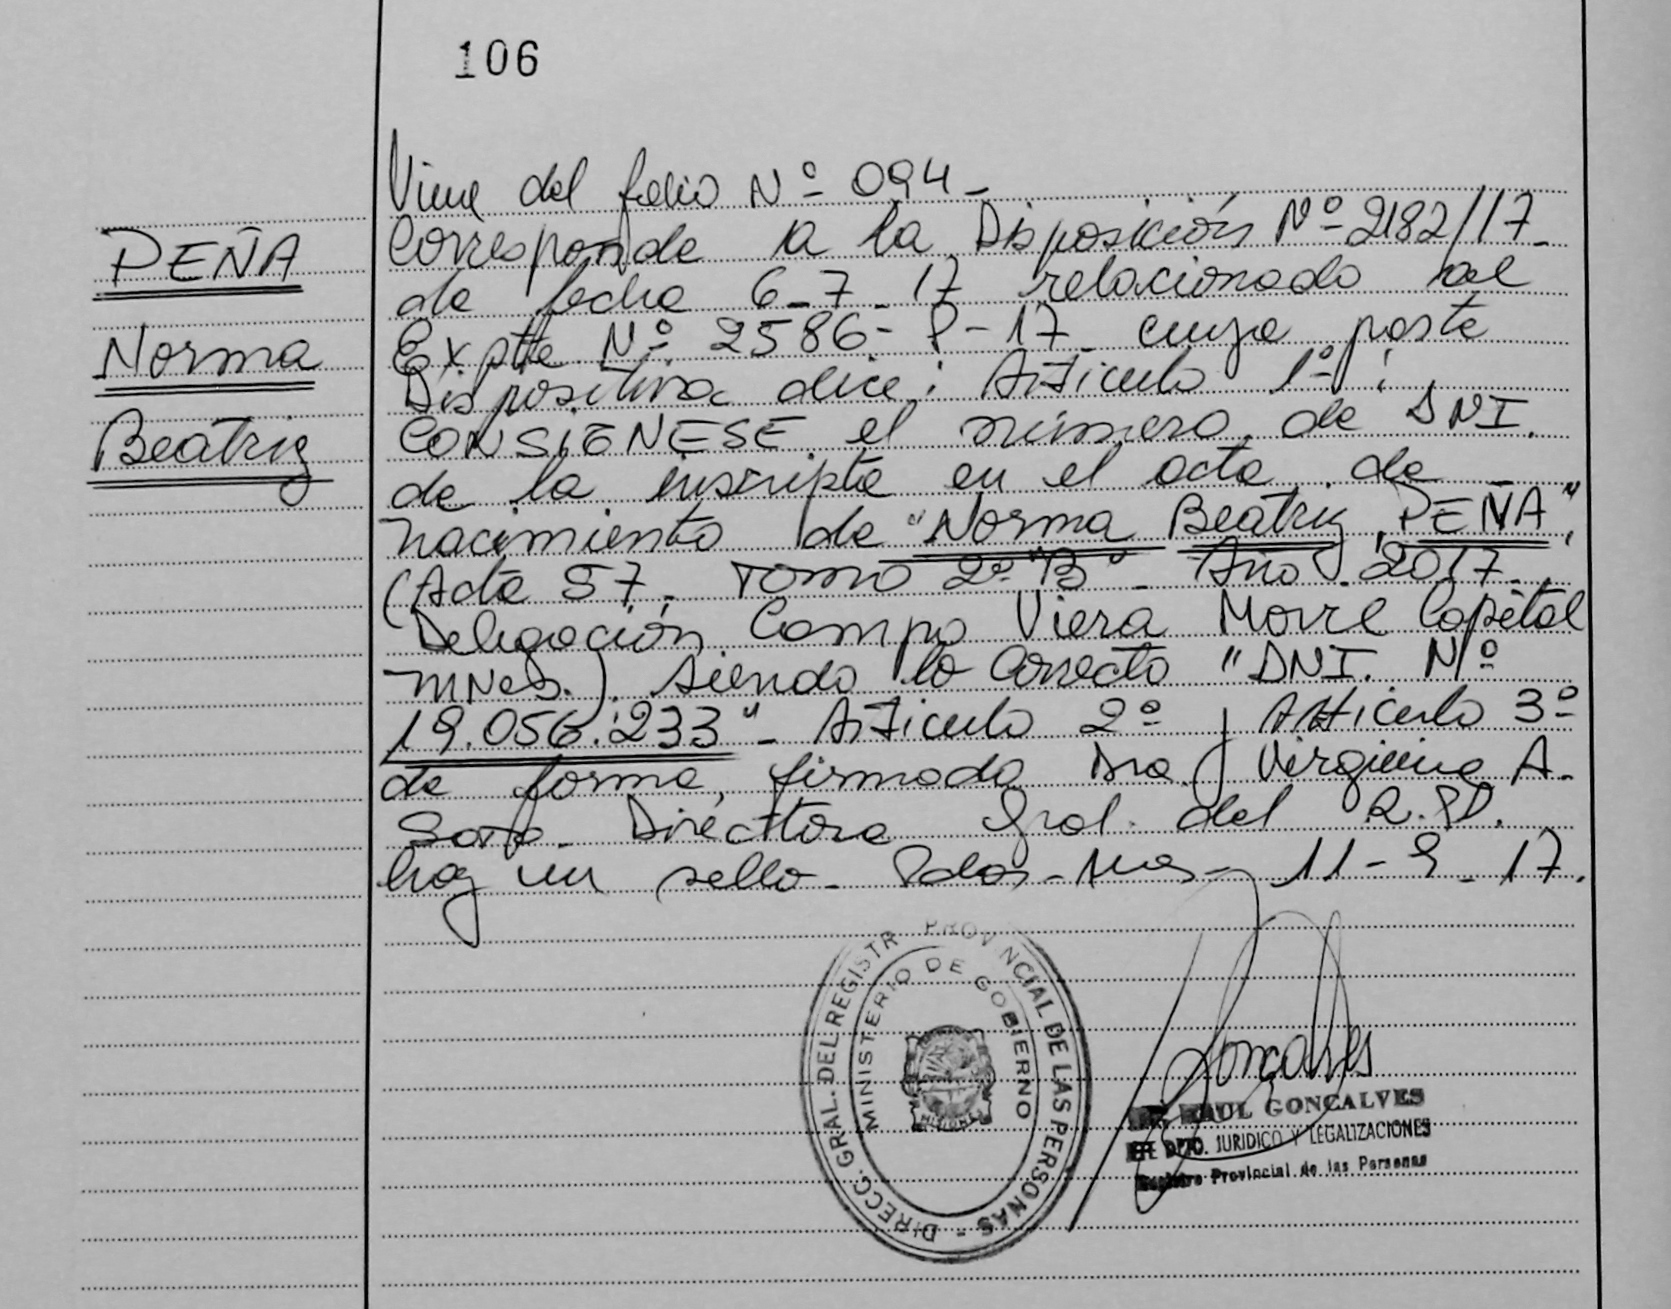 106
PEÑA
Norma
Beatriz
Viene del folio Nº 094-
Corresponde a la Disposición Nº 2182/17-
de fecha 6-7-17 relacionado al
Expte Nº 2586-P-17 cuya parte
Dispositiva dice: Artículo 1º:
CONSIGNESE el número de DNI.
de la inscripta en el acta de
nacimiento de "Norma Beatriz PEÑA",
(Acta 57. Tomo 2º "B" - Año 2017.
Delegación Campo Viera Movil Capital
MNES.). siendo lo Correcto "DNI. Nº
19.056.233" - Artículo 2º y Artículo 3º
de forma, firmado Dra. Virginia A.
Directora Gral. del R.P.P.
hay un sello. Pdas - Mnes - 11-9-17.
DIRECC. GRAL. DEL REGISTR PROV NCIAL DE LAS PERSONAS -
MINISTERIO DE GOBIERNO
MISIONES
Goncalves
RAUL GONCALVES
DPTO. JURIDICO Y LEGALIZACIONES
Registro Provincial de las Personas